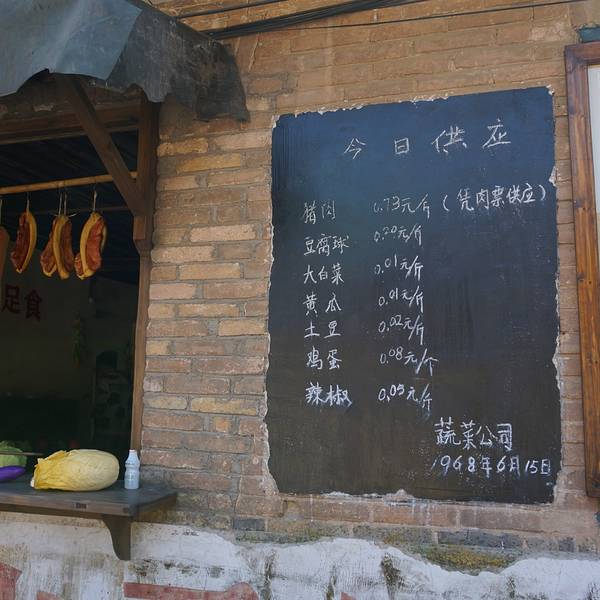 今日供应
猪肉 0.73元/斤 (凭肉票供应)
豆腐球 0.20元/斤
大白菜 0.01元/斤
黄瓜 0.01元/斤
土豆 0.02元/斤
鸡蛋 0.08元/个
辣椒 0.05元/斤
蔬菜公司
1968年6月15日
足食